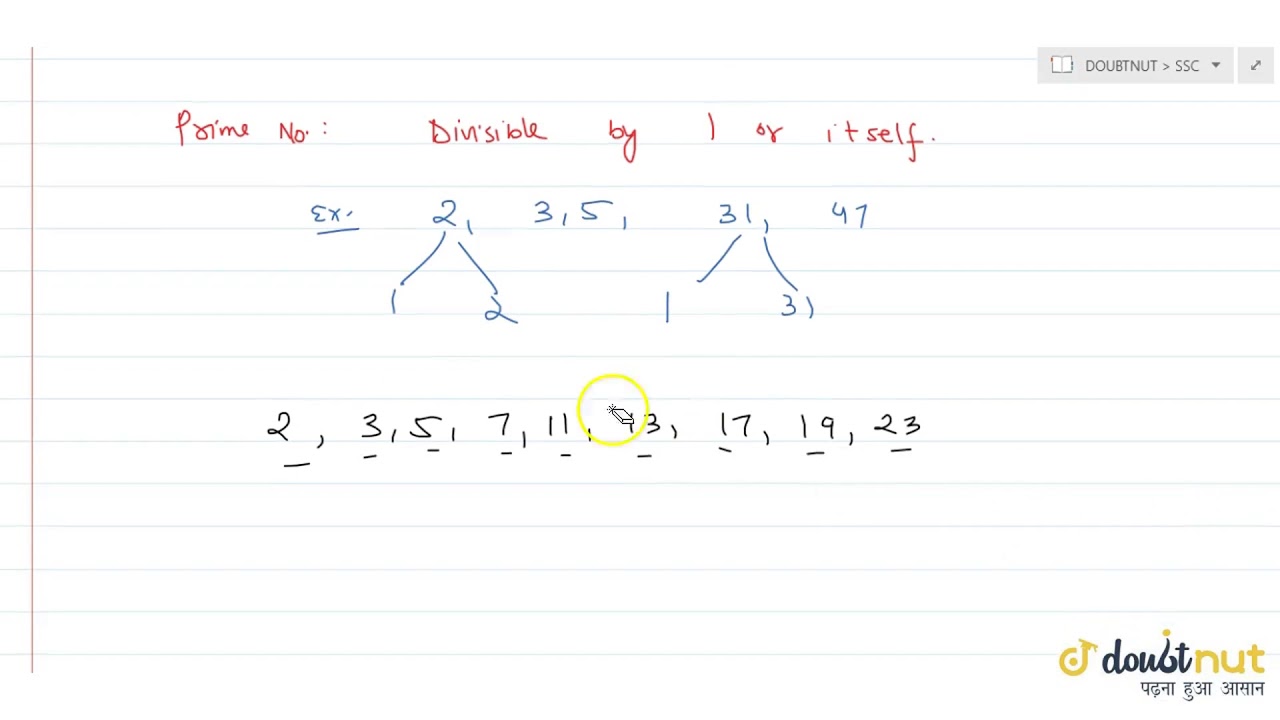 DOUBTNUT > SSC
Prime No.: Divisible by 1 or itself.
Ex. 2, 3, 5, 31, 47
1 2 1 31
2, 3, 5, 7, 11, 13, 17, 19, 23
doubtnut
पढ़ना हुआ आसान